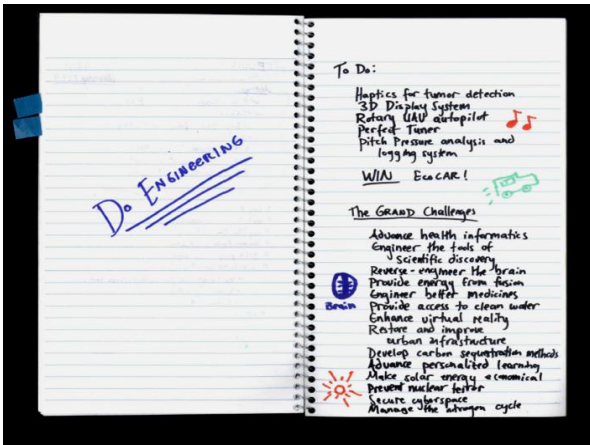 Do ENGINEERING
To Do:
Haptics for tumor detection
3D Display System
Rotary UAV autopilot
Perfect Tuner
Pitch Pressure analysis and
logging system
WIN EcoCAR!
The GRAND Challenges
Advance health informatics
Engineer the tools of
Scientific discovery
Reverse-engineer the brain
Provide energy from fusion
Engineer better medicines
Brain
Provide access to clean water
Enhance virtual reality
Restore and improve
urban infrastructure
Develop carbon sequestration methods
Advance personalized learning
Make solar energy economical
Prevent nuclear terror
Secure cyberspace
Manage the nitrogen cycle